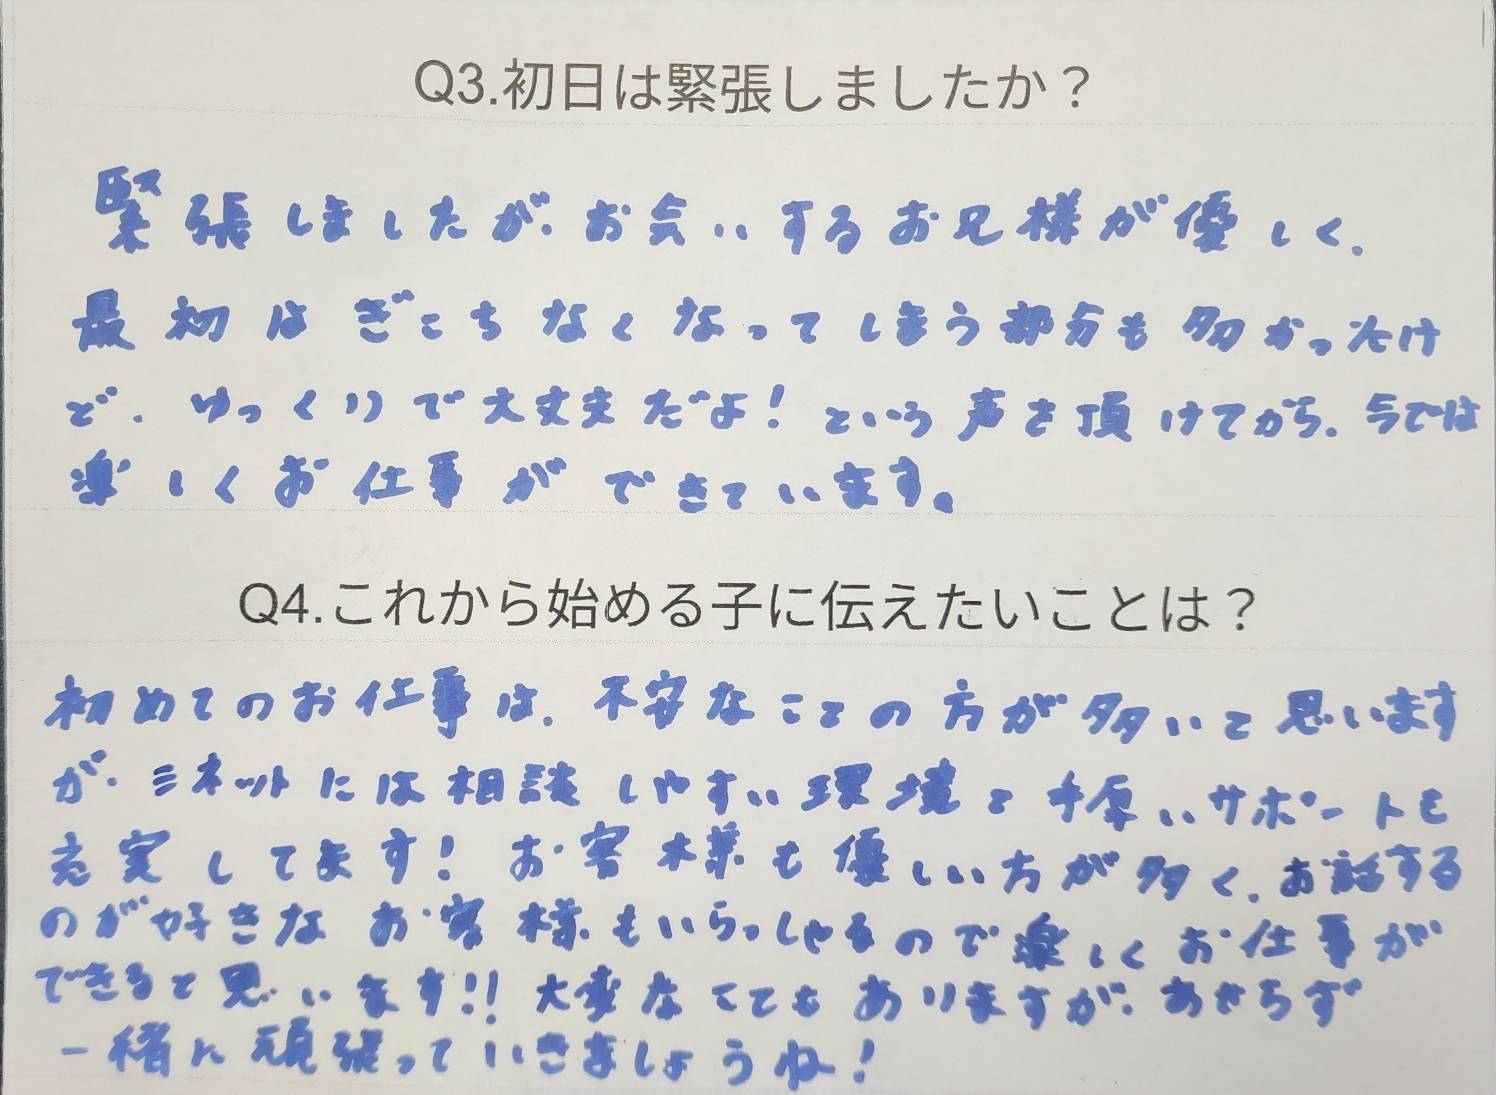 Q3.初日は緊張しましたか？
緊張しましたが、お会いするお兄様が優しく、
最初はぎこちなくなってしまう部分も多かったけ
ど、ゆっくりで大丈夫だよ！という声を頂けてから、今では
楽しくお仕事ができています。
Q4.これから始める子に伝えたいことは？
初めてのお仕事は、不安なことの方が多いと思います
が、ミネットには相談しやすい環境と手厚いサポートも
充実してます！お客様も優しい方が多く、お話する
のが好きなお客様もいらっしゃるので楽しくお仕事が
できると思います!!大変なこともありますが、あせらず
一緒に頑張っていきましょうね！